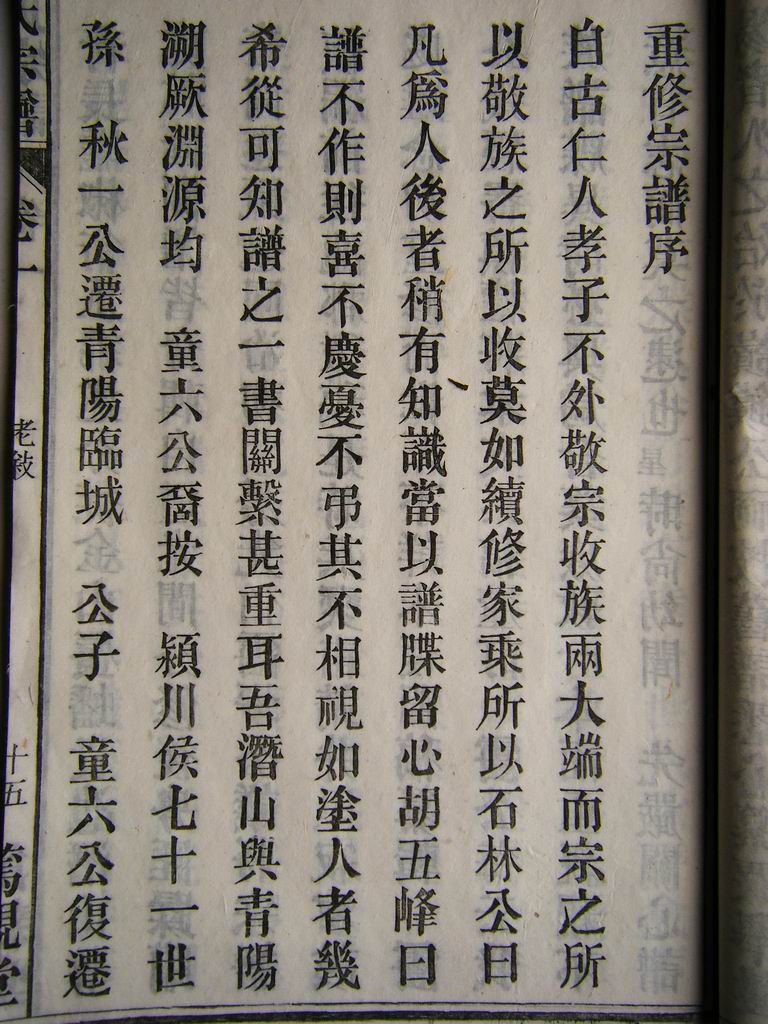 重修宗譜序
自古仁人孝子不外敬宗收族兩大端而宗之所
以敬族之所以收莫如續修家乘所以石林公曰
凡爲人後者稍有知識當以譜牒留心胡五峰曰
譜不作則喜不慶憂不弔其不相視如塗人者幾
希從可知譜之一書關繫甚重耳吾潛山與青陽
溯厥淵源均 童六公裔按 潁川侯七十一世
孫 秋一公遷青陽臨城 公子 童六公復遷
氏宗譜 卷一 老敍 十五 篤親堂